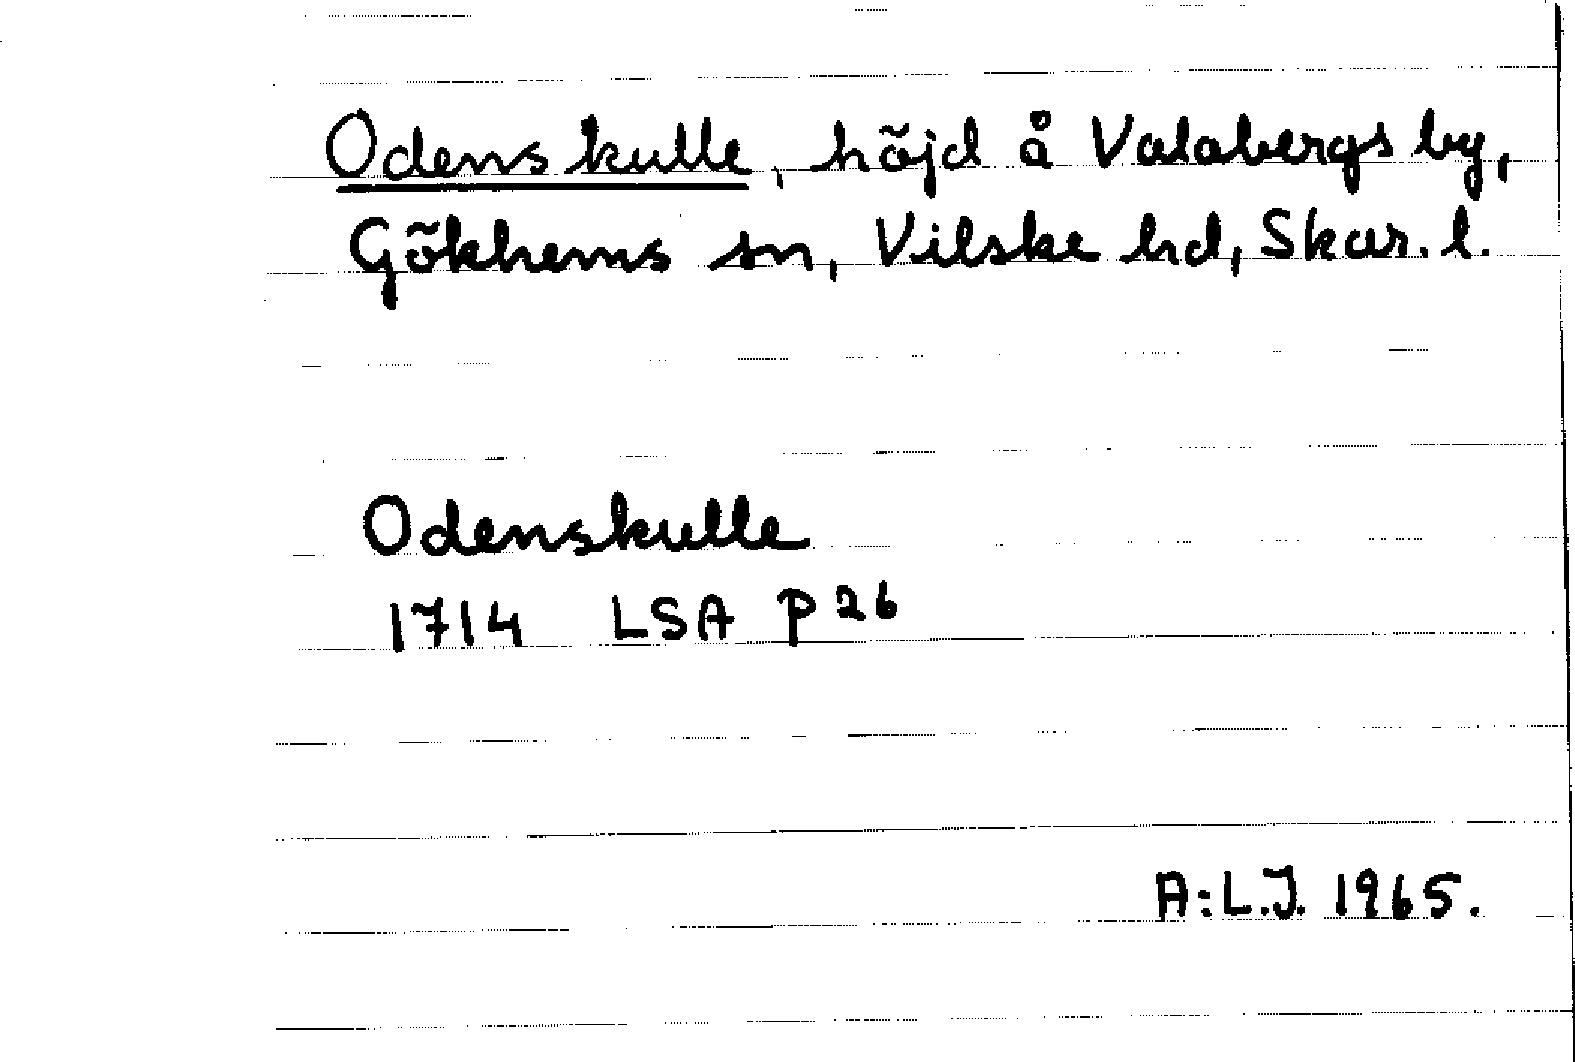 Odenskulle, höjd å Valabergs by,
Gökhems sn, Vilske hd, Skar. l.
Odenskulle
1714 LSA P 26
A:L.J. 1965.